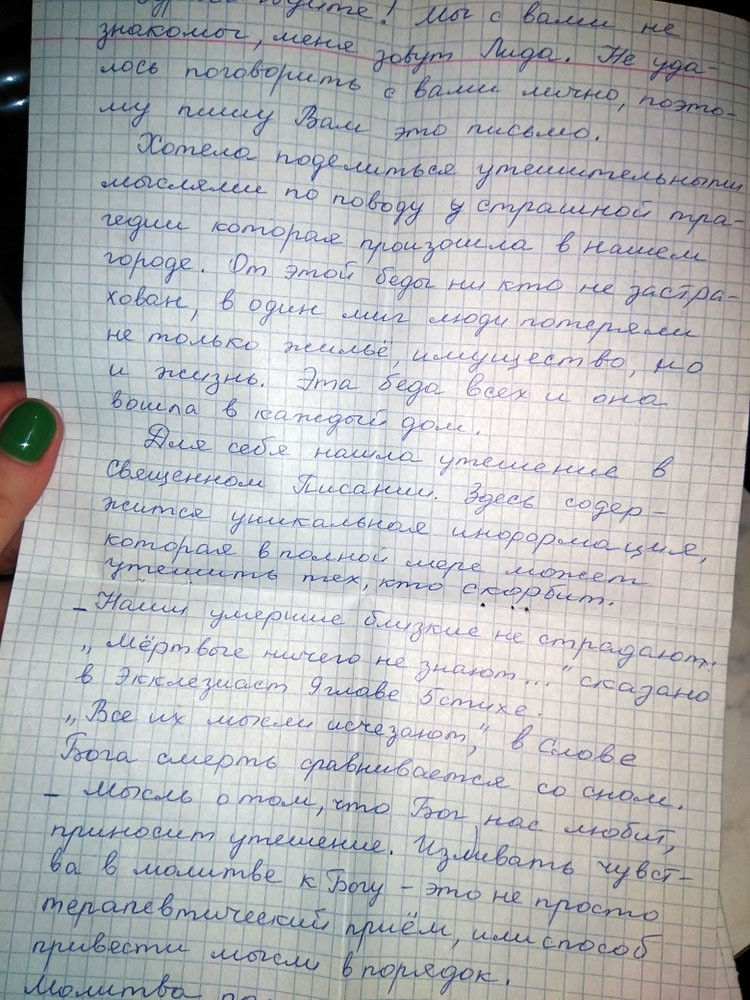 ! Мы с вами не
знакомы, меня зовут Лида. Не уда-
лось поговорить с вами лично, поэто-
му пишу Вам это письмо.
Хотела поделиться утешительными
мыслями по поводу у страшной тра-
гедии которая произошла в нашем
городе. От этой беды ни кто не застра-
хован, в один миг люди потеряли
не только жильё, имущество, но
и жизнь. Эта беда всех и она
вошла в каждый дом.
Для себя нашла утешение в
Священном Писании. Здесь содер-
жится уникальная информация,
которая в полной мере может
утешить тех, кто скорбит.
- Наши умершие близкие не страдают.
„Мёртвые ничего не знают..." сказано
в Экклезиаст 9 главе 5 стихе.
„Все их мысли исчезают", в Слове
Бога смерть сравнивается со сном.
- Мысль о том, что Бог нас любит,
приносит утешение. Изливать чувст-
ва в молитве к Богу - это не просто
терапевтический приём, или способ
привести мысли в порядок.
Молитва